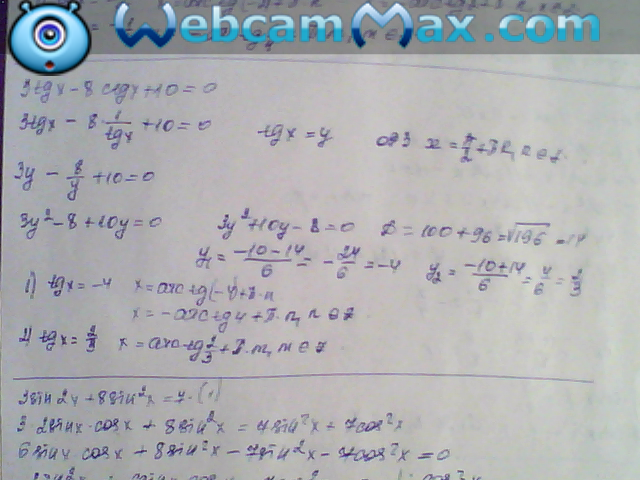 WebcamMax.com
3tgx - 8ctgx + 10 = 0
3tgx - 8·1/tgx + 10 = 0 tgx = y ОДЗ x = π/2 + πn, n ∈ z
3y - 8/y + 10 = 0
3y² - 8 + 10y = 0 3y² + 10y - 8 = 0 D = 100 + 96 = √196 = 14
y₁ = (-10-14)/6 = -24/6 = -4 y₂ = (-10+14)/6 = 4/6 = 2/3
1) tgx = -4 x = arctg(-4) + π·n
x = -arctg4 + π·n, n ∈ z
2) tgx = 2/3 x = arctg 2/3 + π·m, m ∈ z
3sin2x + 8sin²x = 7·(1)
3·2sinx·cosx + 8sin²x = 7sin²x + 7cos²x
6sinx·cosx + 8sin²x - 7sin²x - 7cos²x = 0